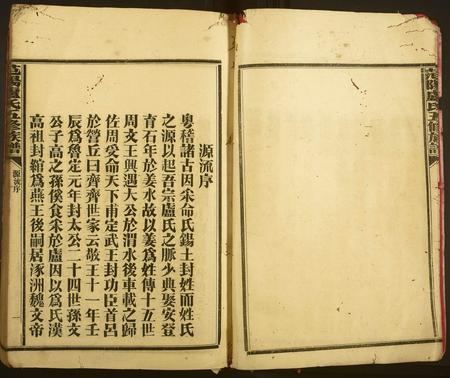 源流序
粵稽諸古因采命氏錫土封姓而姓氏
之源以起吾宗盧氏之脈少典娶安登
育石年於姜水故以姜爲姓傳十五世
周文王興遇大公於渭水後車載之歸
佐周受命天下甫定武王封功臣首呂
於營丘曰齊齊世家云敬王十一年壬
辰爲魯定元年封太公二十四世孫文
公子高之孫傒食采於盧因以爲氏漢
高祖封綰爲燕王後嗣居涿洲魏文帝
范陽盧氏五修族譜
源流序
一
范陽盧氏五修族譜